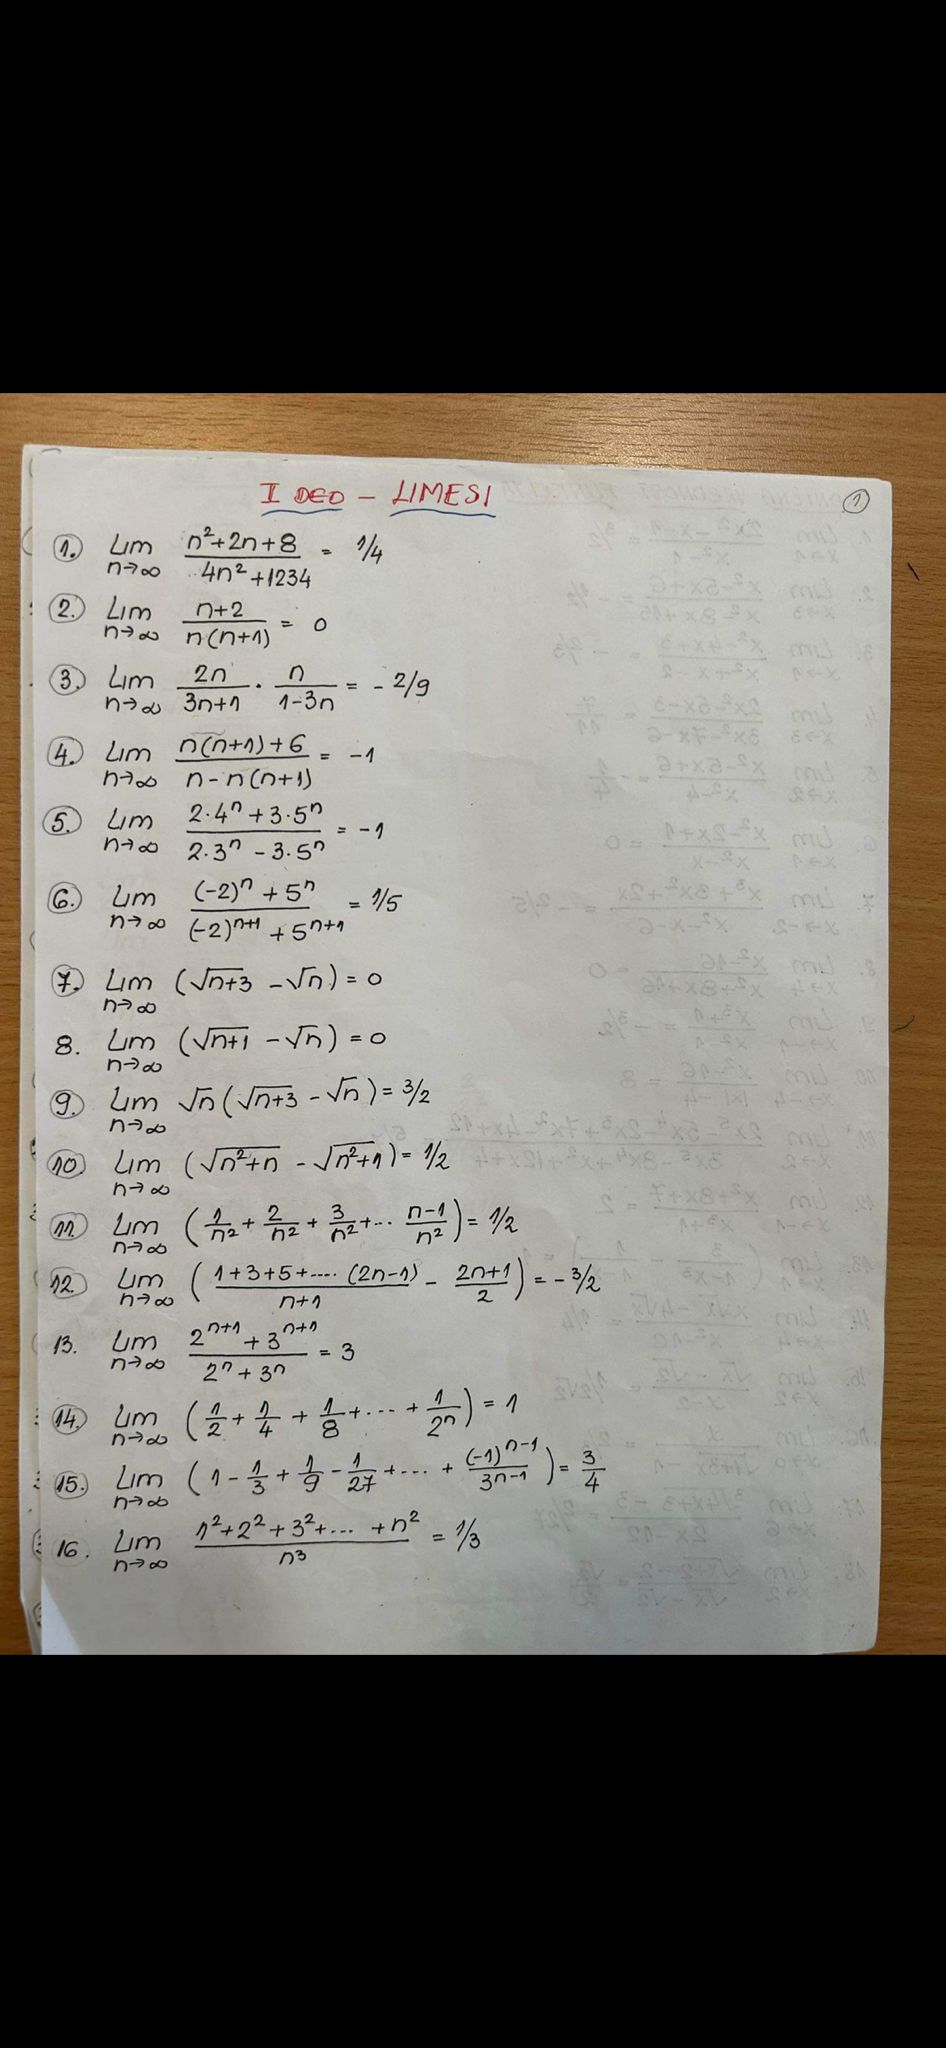 I DEO - LIMESI
1
1. Lim n→∞ (n²+2n+8)/(4n²+1234) = 1/4
2. Lim n→∞ (n+2)/(n(n+1)) = 0
3. Lim n→∞ 2n/(3n+1) · n/(1-3n) = -2/9
4. Lim n→∞ (n(n+1)+6)/(n-n(n+1)) = -1
5. Lim n→∞ (2·4ⁿ+3·5ⁿ)/(2·3ⁿ-3·5ⁿ) = -1
6. Lim n→∞ ((-2)ⁿ+5ⁿ)/((-2)ⁿ⁺¹+5ⁿ⁺¹) = 1/5
7. Lim n→∞ (√(n+3) - √n) = 0
8. Lim n→∞ (√(n+1) - √n) = 0
9. Lim n→∞ √n(√(n+3) - √n) = 3/2
10. Lim n→∞ (√(n²+n) - √(n²+1)) = 1/2
11. Lim n→∞ (1/n² + 2/n² + 3/n² + ... (n-1)/n²) = 1/2
12. Lim n→∞ ((1+3+5+.... (2n-1))/(n+1) - (2n+1)/2) = -3/2
13. Lim n→∞ (2ⁿ⁺¹+3ⁿ⁺¹)/(2ⁿ+3ⁿ) = 3
14. Lim n→∞ (1/2 + 1/4 + 1/8 + ... + 1/2ⁿ) = 1
15. Lim n→∞ (1 - 1/3 + 1/9 - 1/27 + ... + (-1)ⁿ⁻¹/3ⁿ⁻¹) = 3/4
16. Lim n→∞ (1²+2²+3²+... +n²)/n³ = 1/3